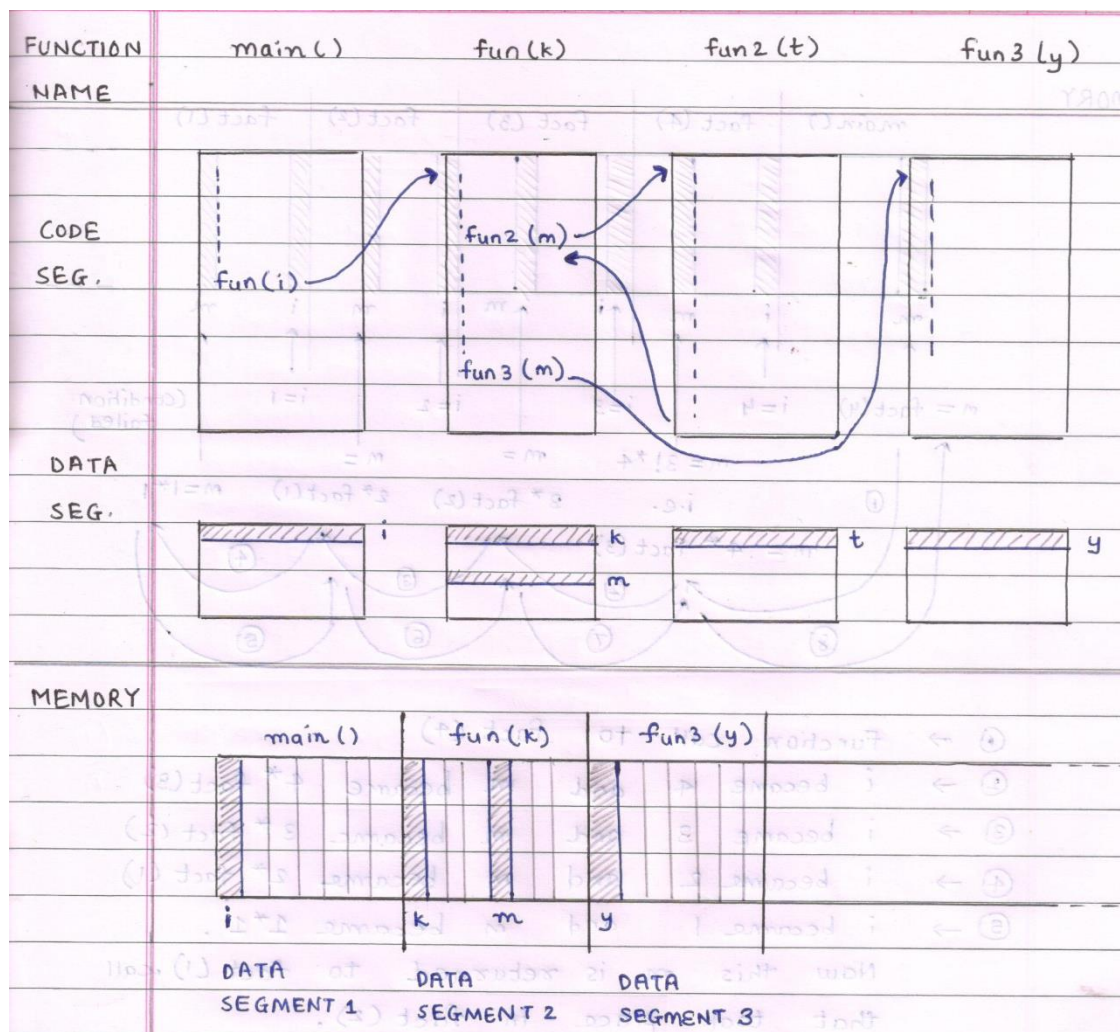 FUNCTION NAME
main()
fun(k)
fun2(t)
fun3(y)
CODE SEG.
fun(i)
fun2(m)
fun3(m)
DATA SEG.
i
k
m
t
y
MEMORY
main()
fun(k)
fun3(y)
i
k
m
y
DATA SEGMENT 1
DATA SEGMENT 2
DATA SEGMENT 3